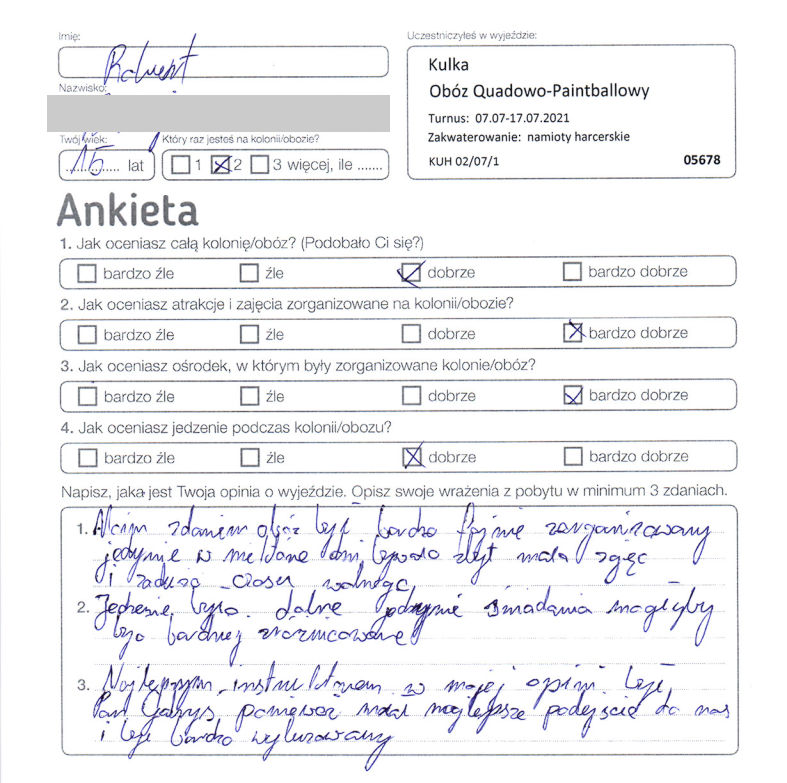 Imię:
Uczestniczyłeś w wyjeździe:
Kulka
Nazwisko:
Obóz Quadowo-Paintballowy
Turnus: 07.07-17.07.2021
Twój wiek:
Który raz jesteś na kolonii/obozie?
Zakwaterowanie: namioty harcerskie
15 lat
1 2 3 więcej, ile .......
KUH 02/07/1 05678
Ankieta
1. Jak oceniasz całą kolonię/obóz? (Podobało Ci się?)
bardzo źle źle dobrze bardzo dobrze
2. Jak oceniasz atrakcje i zajęcia zorganizowane na kolonii/obozie?
bardzo źle źle dobrze bardzo dobrze
3. Jak oceniasz ośrodek, w którym były zorganizowane kolonie/obóz?
bardzo źle źle dobrze bardzo dobrze
4. Jak oceniasz jedzenie podczas kolonii/obozu?
bardzo źle źle dobrze bardzo dobrze
Napisz, jaka jest Twoja opinia o wyjeździe. Opisz swoje wrażenia z pobytu w minimum 3 zdaniach.
1. zdaniem obóz był bardzo fajnie zorganizowany
jedynie w dni było zbyt mało zajęć
i za dużo czasu wolnego
2. Jedzenie było dobre jedynie śniadania mogłyby
być bardziej zróżnicowane
3. Najlepszym instruktorem w mojej opini był
Pan ponieważ miał najlepsze podejście do nas
i był bardzo wyluzowany